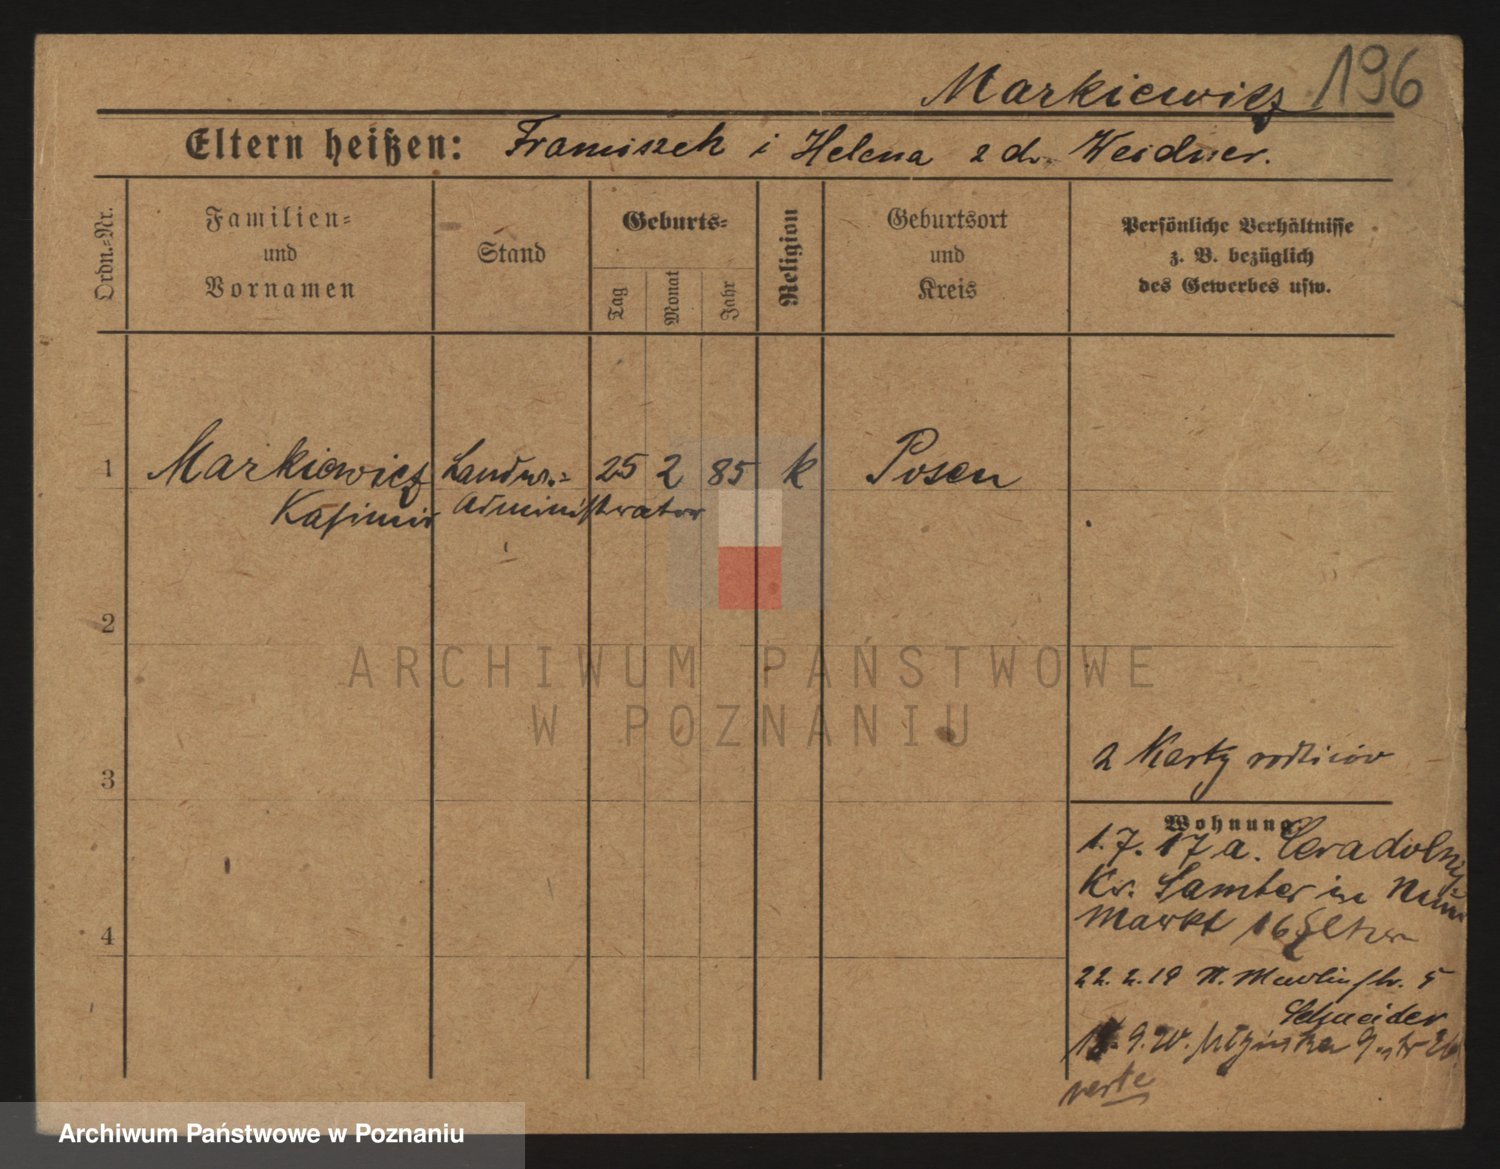 Markiewicz 196
Eltern heißen: Franciszek i Helena z d. Weidner.
Ordn.=Nr.
Familien=
und
Vornamen
Stand
Geburts=
Tag
Monat
Jahr
Religion
Geburtsort
und
Kreis
Persönliche Verhältnisse
z. B. bezüglich
des Gewerbes usw.
1 Markiewicz Landw.= 25 2 85 k Posen
Kasimir Administrator
2
3
4
2 Karty rodziców
Wohnung.
1. 7. 17 a.
Kr. Samter in Neuer
Markt 16 Eltern
22. 2. 19
Schneider
9. 20. Młyńska 9
verte
ARCHIWUM PAŃSTWOWE
W POZNANIU
Archiwum Państwowe w Poznaniu